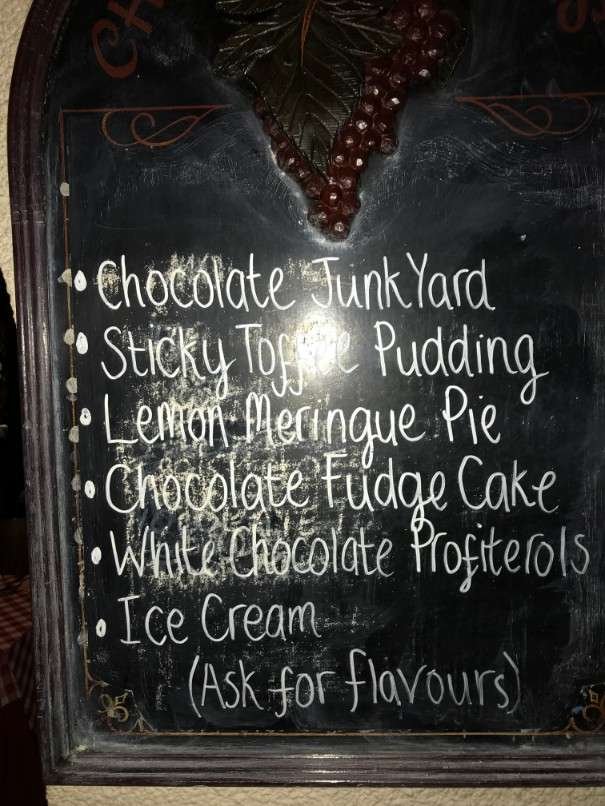 • Chocolate JunkYard
• Sticky Pudding
• Lemon Meringue Pie
• Chocolate Fudge Cake
• White Chocolate Profiterols
• Ice Cream
(Ask for flavours)